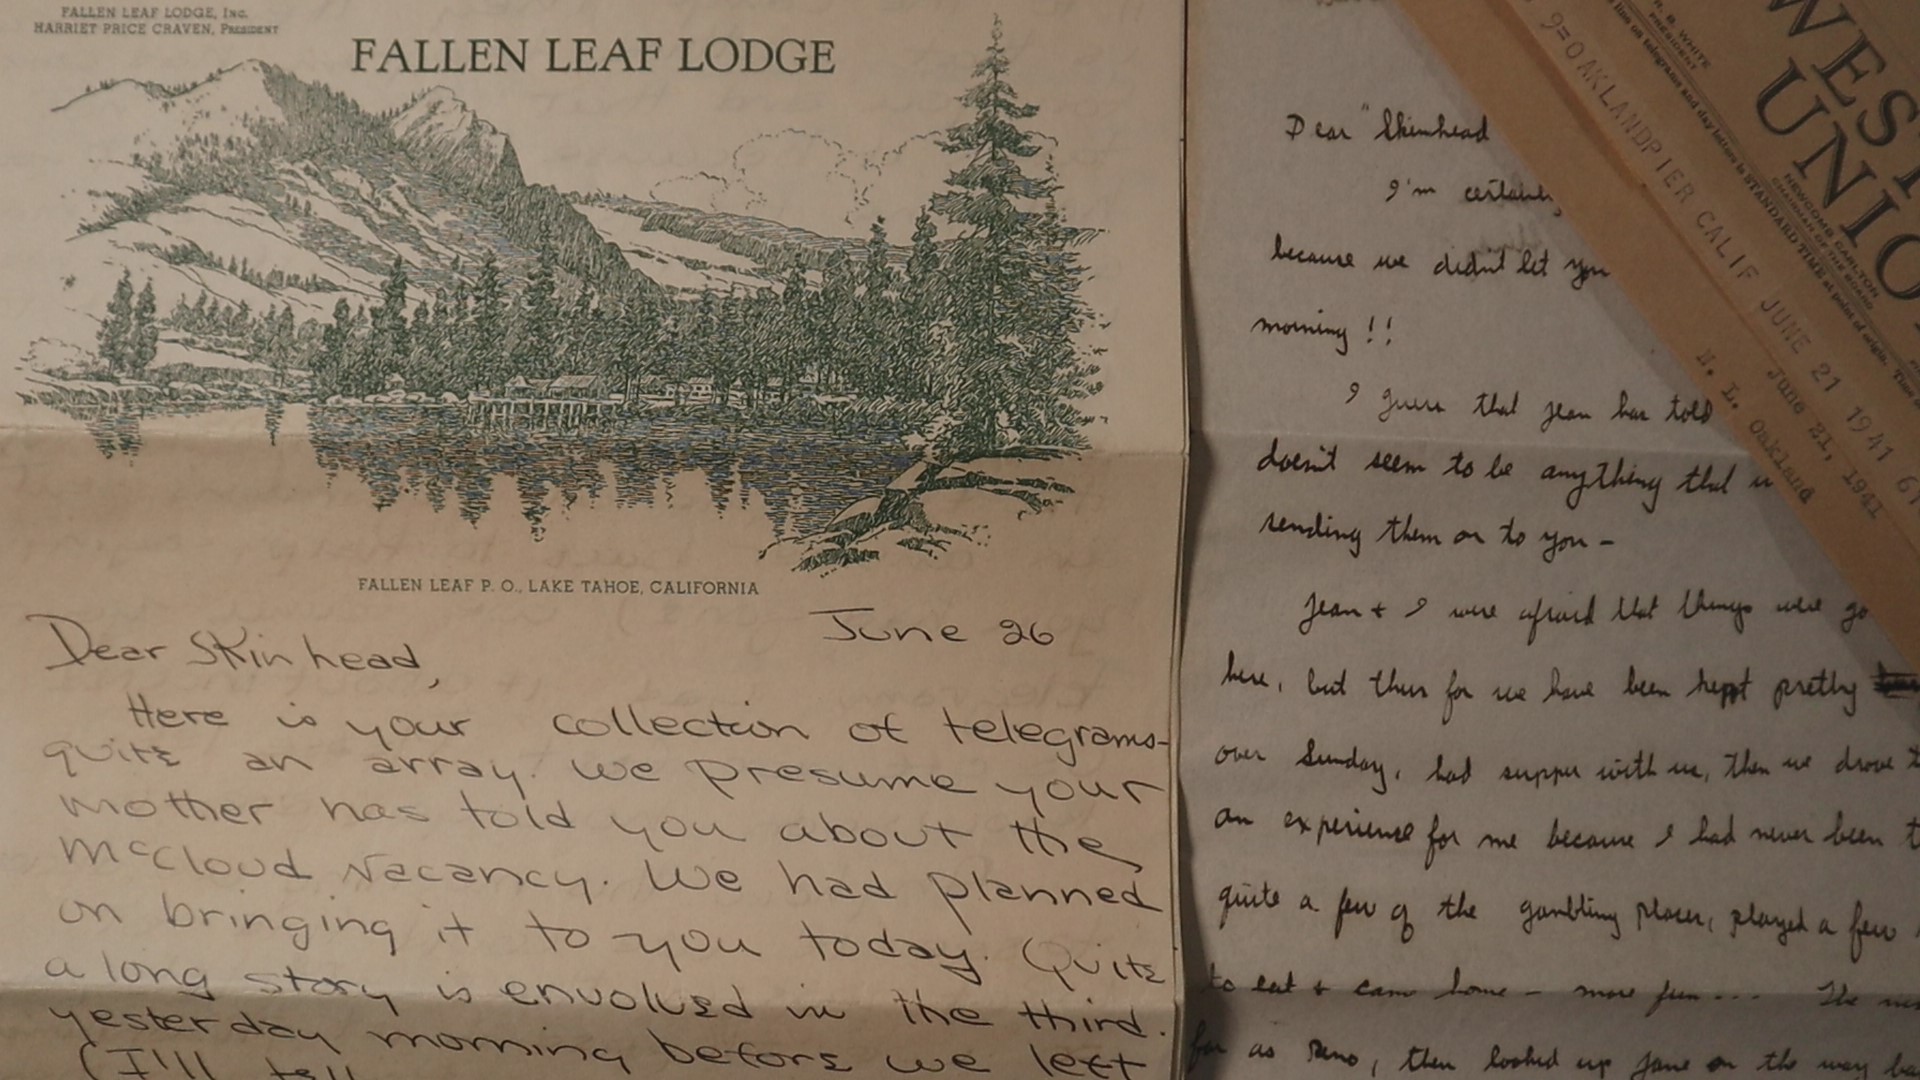 FALLEN LEAF LODGE, Inc.
HARRIET PRICE CRAVEN, President
FALLEN LEAF LODGE
FALLEN LEAF P. O., LAKE TAHOE, CALIFORNIA
June 26
Dear Skinhead,
Here is your collection of telegrams-
quite an array. We presume your
mother has told you about the
McCloud Vacancy. We had planned
on bringing it to you today. Quite
a long story is envolved in the third.
yesterday morning before we left
(I'll tell
Dear "Skinhead
I'm certainly
because we didn't let you
morning !!
I guess that Jean has told
doesn't seem to be anything that
sending them on to you -
Jean + I were afraid that things were go
here, but thus far we have been kept pretty
over Sunday, had supper with us, then we drove t
an experience for me because I had never been t
quite a few of the gambling places, played a few
to eat + came home - more fun... The
far as Reno, then looked up Jane on the way ba
WEST
UNIO
R. B. WHITE
PRESIDENT
NEWCOMB CARLTON
CHAIRMAN OF THE BOARD
line on telegrams and day letters is STANDARD TIME at point of origin. Time
9=OAKLANDPIER CALIF JUNE 21 1941
June 21, 1941
N. L. Oakland